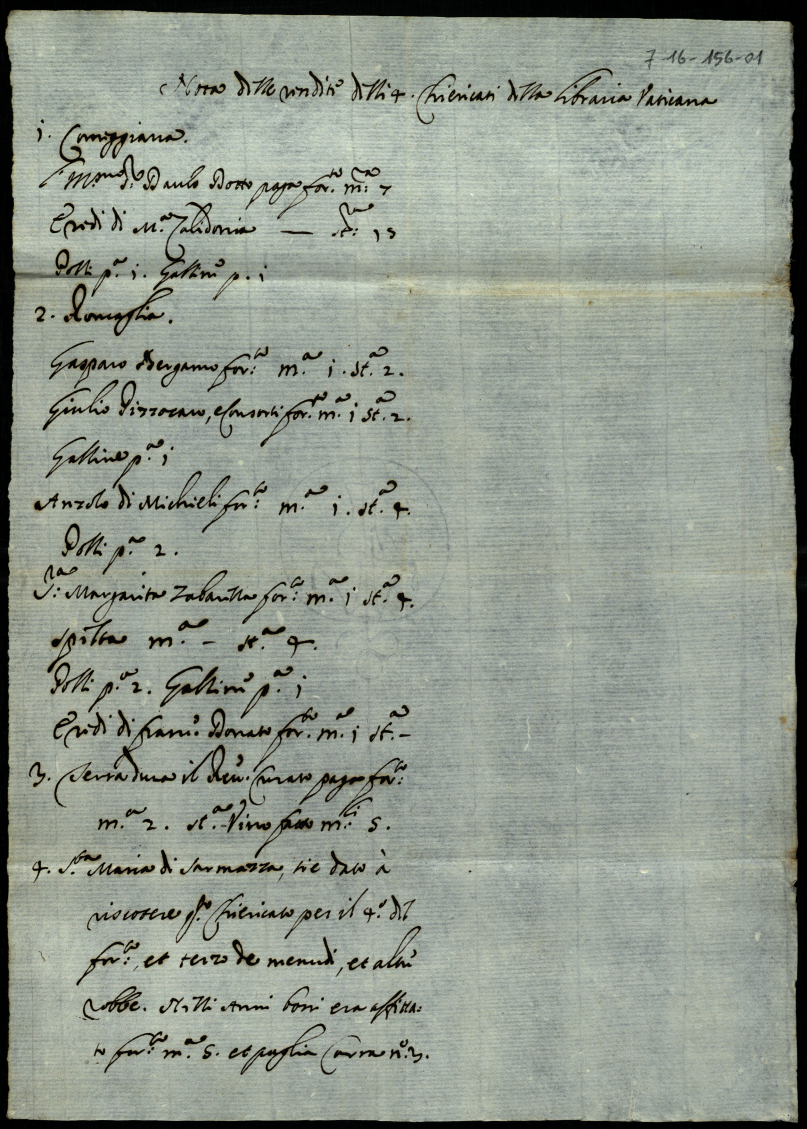 7-16-156-01
Nota delle rendite delli 4. Chiericati della Libraria Vaticana
1. Correggiana.
Sr: Paulo Dotto paga for:to m:a 7
Eredi di M.a Calidonia — st:a 15
Polli p.a 1. Galline p. 1
2. Roncaglia.
Gasparo Bergamo for:to m.a 1. st.a 2.
Giulio Pizzocaro, e Consorti for:to m.a 1 st.a 2.
Galline p.a 1
Anzolo di Michieli for:to m.a 1. st.a 4.
Polli p.a 2.
S:ra Margarita Zabarella for:to m.a 1 st.a 4.
Spelta m.a – st.a 4.
Polli p.a 2. Galline p.a 1
Eredi di Franc.o Donato for.to m.a 1 st.a –
3. Terradura il Reu. Curato paga for:to
m.a 2. st.a – Vino m:li 5.
4. S.ta Maria di Sarmazza, si è dato à
riscotere q.to Chiericato per il 4.o del
for:to, et terzo de menudi, et altre
robbe. Nelli Anni boni era affitta=
to for:to m.a 5. et paglia Carra n.o 3.